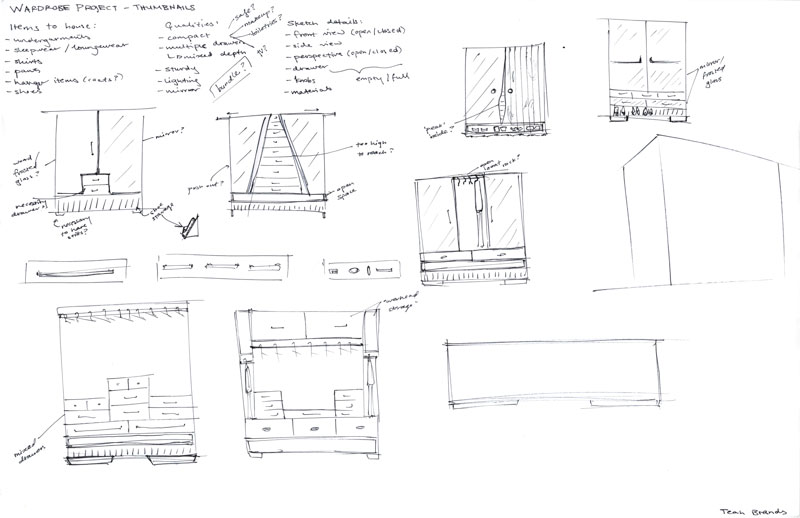 WARDROBE PROJECT - THUMBNAILS
Items to house:
- undergarments
- sleepwear / loungewear
- shirts
- pants
- hanger items (coats?)
- shoes
Qualities:
- compact
- multiple drawers
↳ mixed depth
- sturdy
- lighting
- mirror
safe?
makeup?
toiletries?
TV?
bundle?
Sketch details:
- front view (open/closed)
- side view
- perspective (open/closed)
- drawer
- knobs
- materials
empty / full
wood/
frosted
glass?
mirror?
necessity drawer?
necessary
to have
shoe
storage
push out?
too high
to reach?
open
space
"peak"
inside?
mirror/
frosted
glass
open
rack?
overhead
storage?
mixed
drawers
Teah Brands